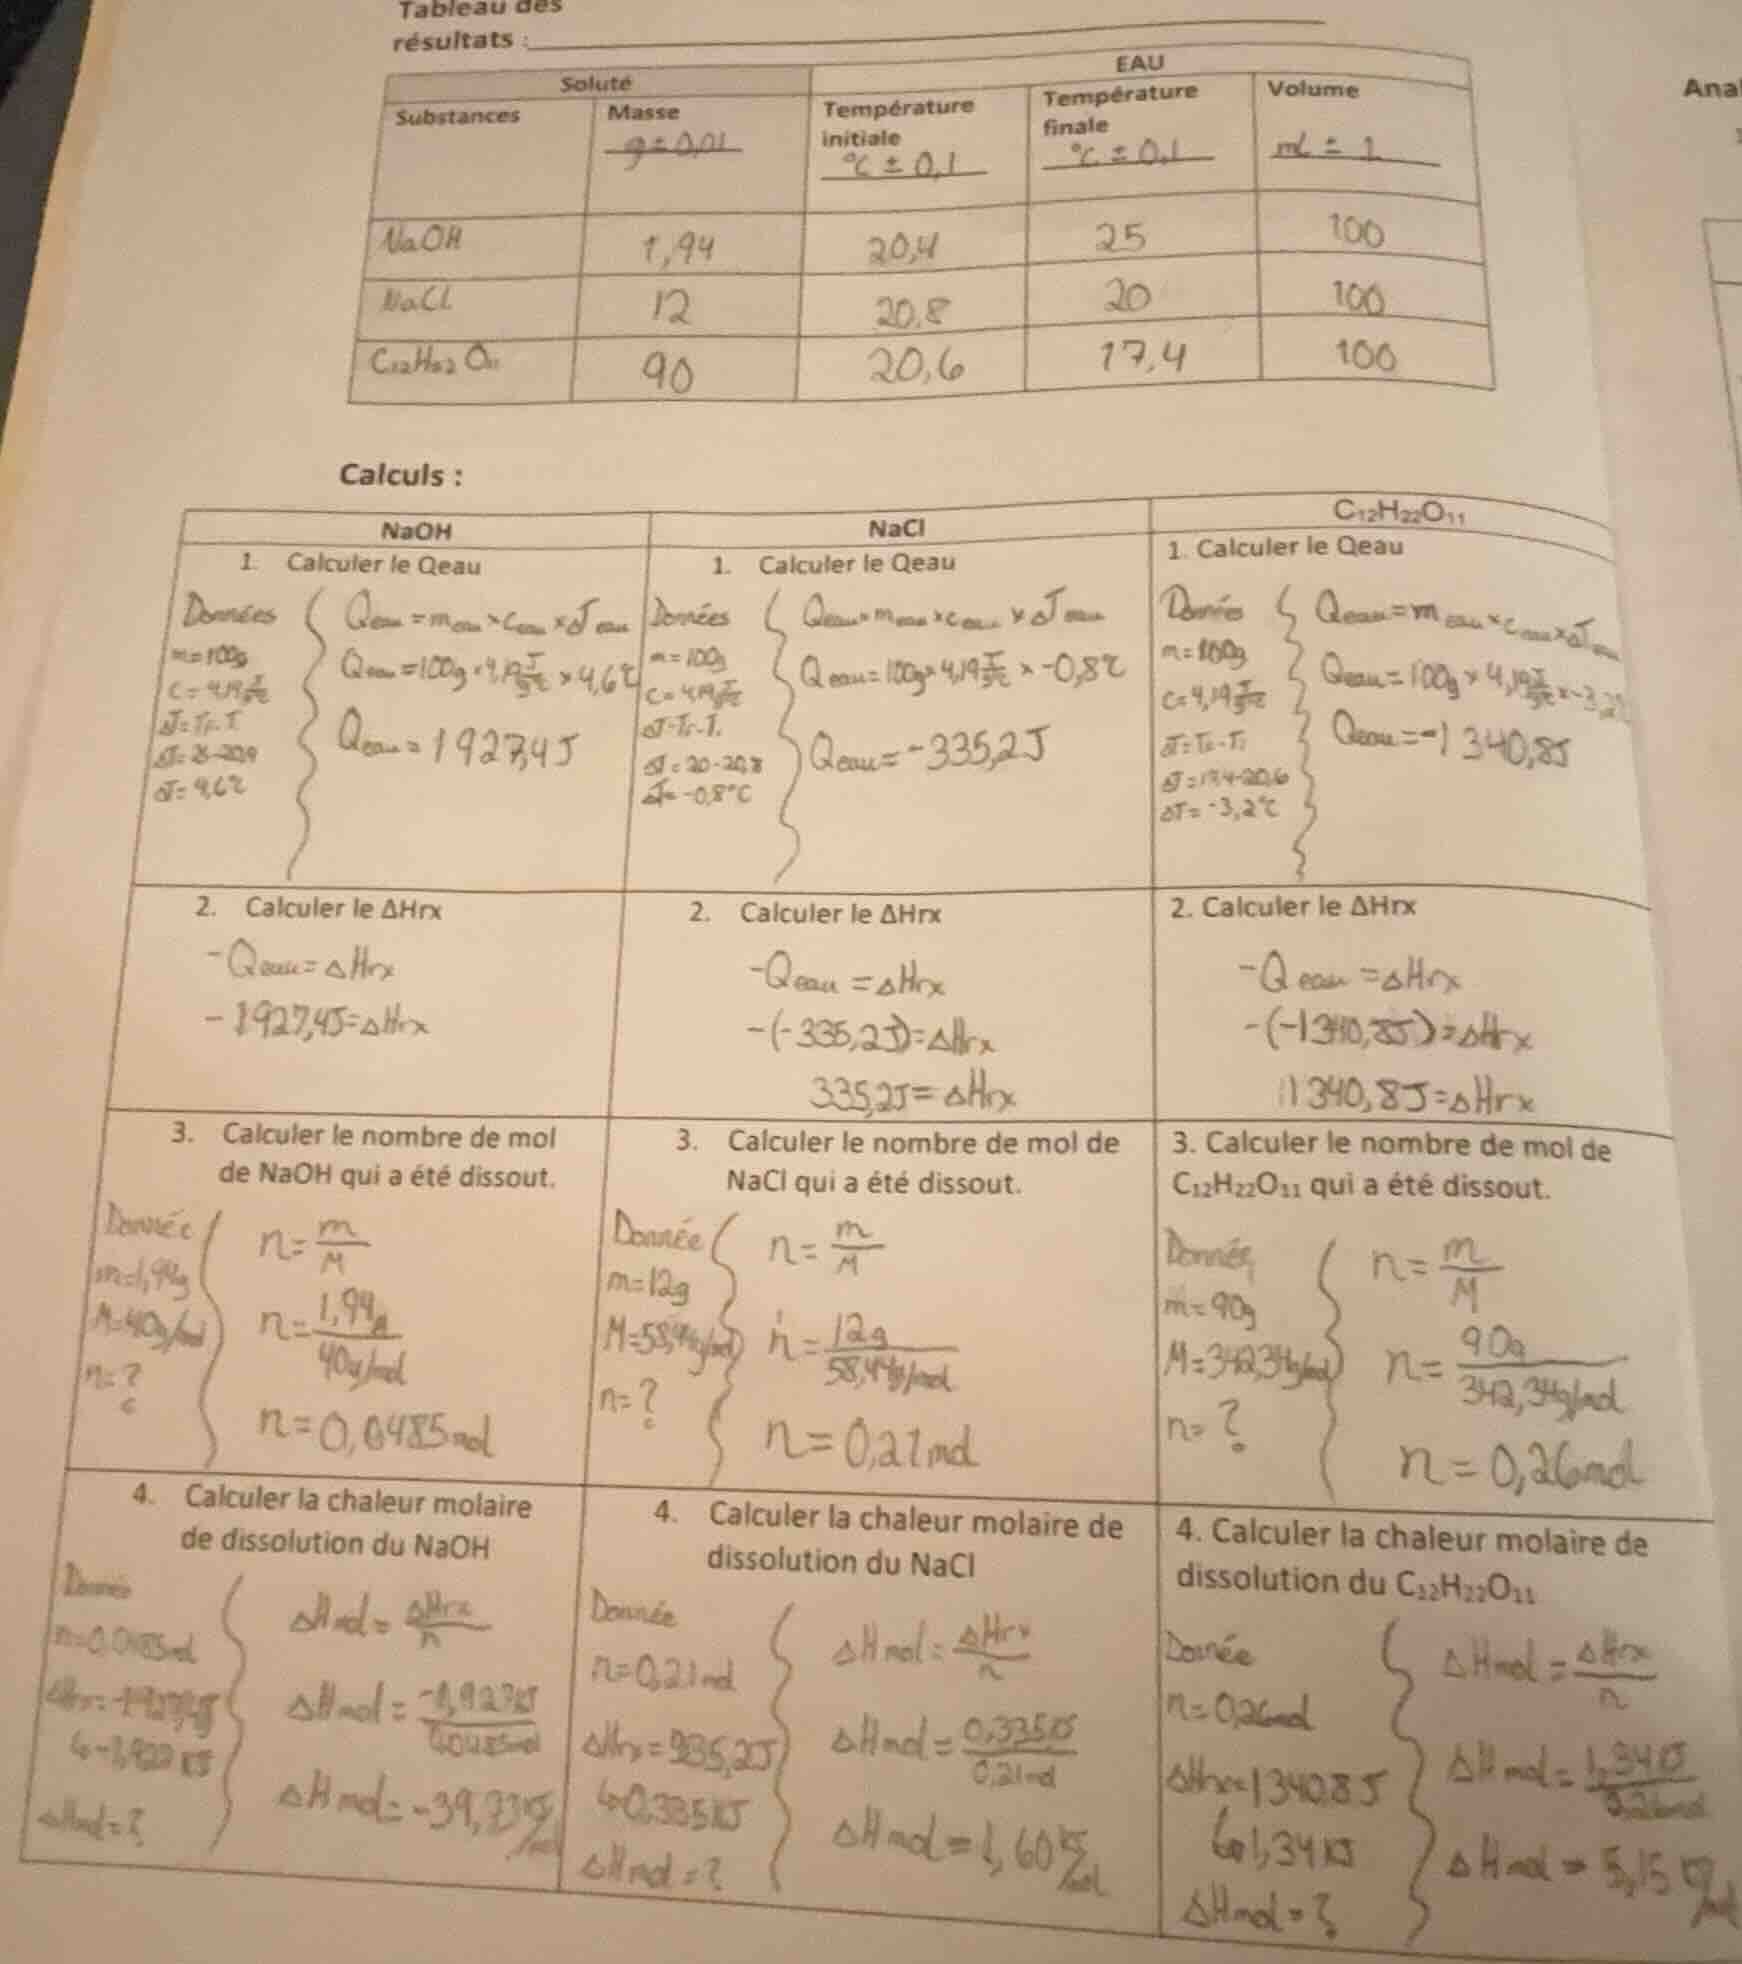 Tableau des
résultats :
Soluté
EAU
Substances
Masse
g ± 0,01
Température
initiale
°C ± 0,1
Température
finale
°C ± 0,1
Volume
mL ± 1
NaOH 1,94 20,4 25 100
NaCl 12 20,8 20 100
C12H22O11 90 20,6 17,4 100
Ana
Calculs :
NaOH
1. Calculer le Qeau
Données
m=100g
C=4,19 J/g°C
ΔT=Tf-Ti
ΔT=25-20,4
ΔT=4,6°C
Qeau=meau×Ceau×ΔTeau
Qeau=100g×4,19 J/g°C×4,6°C
Qeau=1927,4J
NaCl
1. Calculer le Qeau
Données
m=100g
C=4,19 J/g°C
ΔT=Tf-Ti
ΔT=20-20,8
ΔT=-0,8°C
Qeau=meau×Ceau×ΔTeau
Qeau=100g×4,19 J/g°C×-0,8°C
Qeau=-335,2J
C₁₂H₂₂O₁₁
1. Calculer le Qeau
Données
m=100g
C=4,19 J/g°C
ΔT=Tf-Ti
ΔT=17,4-20,6
ΔT=-3,2°C
Qeau=meau×Ceau×ΔTeau
Qeau=100g×4,19 J/g°C×-3,2°C
Qeau=-1340,8J
2. Calculer le ΔHrx
-Qeau=ΔHrx
-1927,4J=ΔHrx
2. Calculer le ΔHrx
-Qeau=ΔHrx
-(-335,2J)=ΔHrx
335,2J=ΔHrx
2. Calculer le ΔHrx
-Qeau=ΔHrx
-(-1340,8J)=ΔHrx
1340,8J=ΔHrx
3. Calculer le nombre de mol
de NaOH qui a été dissout.
Donnée
m=1,94g
M=40g/mol
n=?
n=m/M
n=1,94g/40g/mol
n=0,0485mol
3. Calculer le nombre de mol de
NaCl qui a été dissout.
Donnée
m=12g
M=58,44g/mol
n=?
n=m/M
n=12g/58,44g/mol
n=0,21mol
3. Calculer le nombre de mol de
C₁₂H₂₂O₁₁ qui a été dissout.
Donnée
m=90g
M=342,34g/mol
n=?
n=m/M
n=90g/342,34g/mol
n=0,26mol
4. Calculer la chaleur molaire
de dissolution du NaOH
Donnée
n=0,0485mol
ΔHrx=-1927,4J
↳-1,927KJ
ΔHmol=?
ΔHmol=ΔHrx/n
ΔHmol=-1,927KJ/0,0485mol
ΔHmol=-39,73KJ/mol
4. Calculer la chaleur molaire de
dissolution du NaCl
Donnée
n=0,21mol
ΔHrx=335,2J
↳0,335KJ
ΔHmol=?
ΔHmol=ΔHrx/n
ΔHmol=0,335KJ/0,21mol
ΔHmol=1,60KJ/mol
4. Calculer la chaleur molaire de
dissolution du C₁₂H₂₂O₁₁
Donnée
n=0,26mol
ΔHrx=1340,8J
↳1,34KJ
ΔHmol=?
ΔHmol=ΔHrx/n
ΔHmol=1,34KJ/0,26mol
ΔHmol=5,15KJ/mol